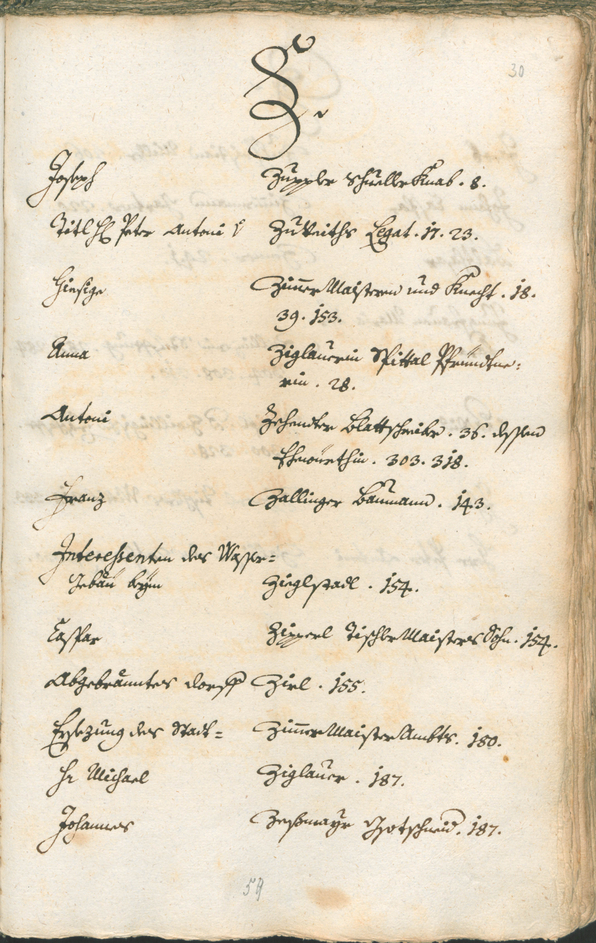 30
Z.
Joseph Zuggler Schuellerknab. 8.
Titl H. Peter Antoni Zu Legat. 17. 23.
Hiesige Zimermaisteren und Knecht. 18.
39. 153.
Anna Ziglauerin Spittal Pfründtne:
rin. 28.
Antoni Zehendter Blattschreiber. 36. dessen
Ehewürthin. 303. 318.
Franz Zallinger Baumann. 143.
Interessenten des Wasser=
beym Zieglstadl. 154.
Caspar Zipperl Tischlermaisters Sohn. 154.
Abgebranntes dorff Zirl. 155.
Ersezung des Statt= Zimermaister Ambts. 180.
Hr Michael Ziglauer. 187.
Johannes 187.
59